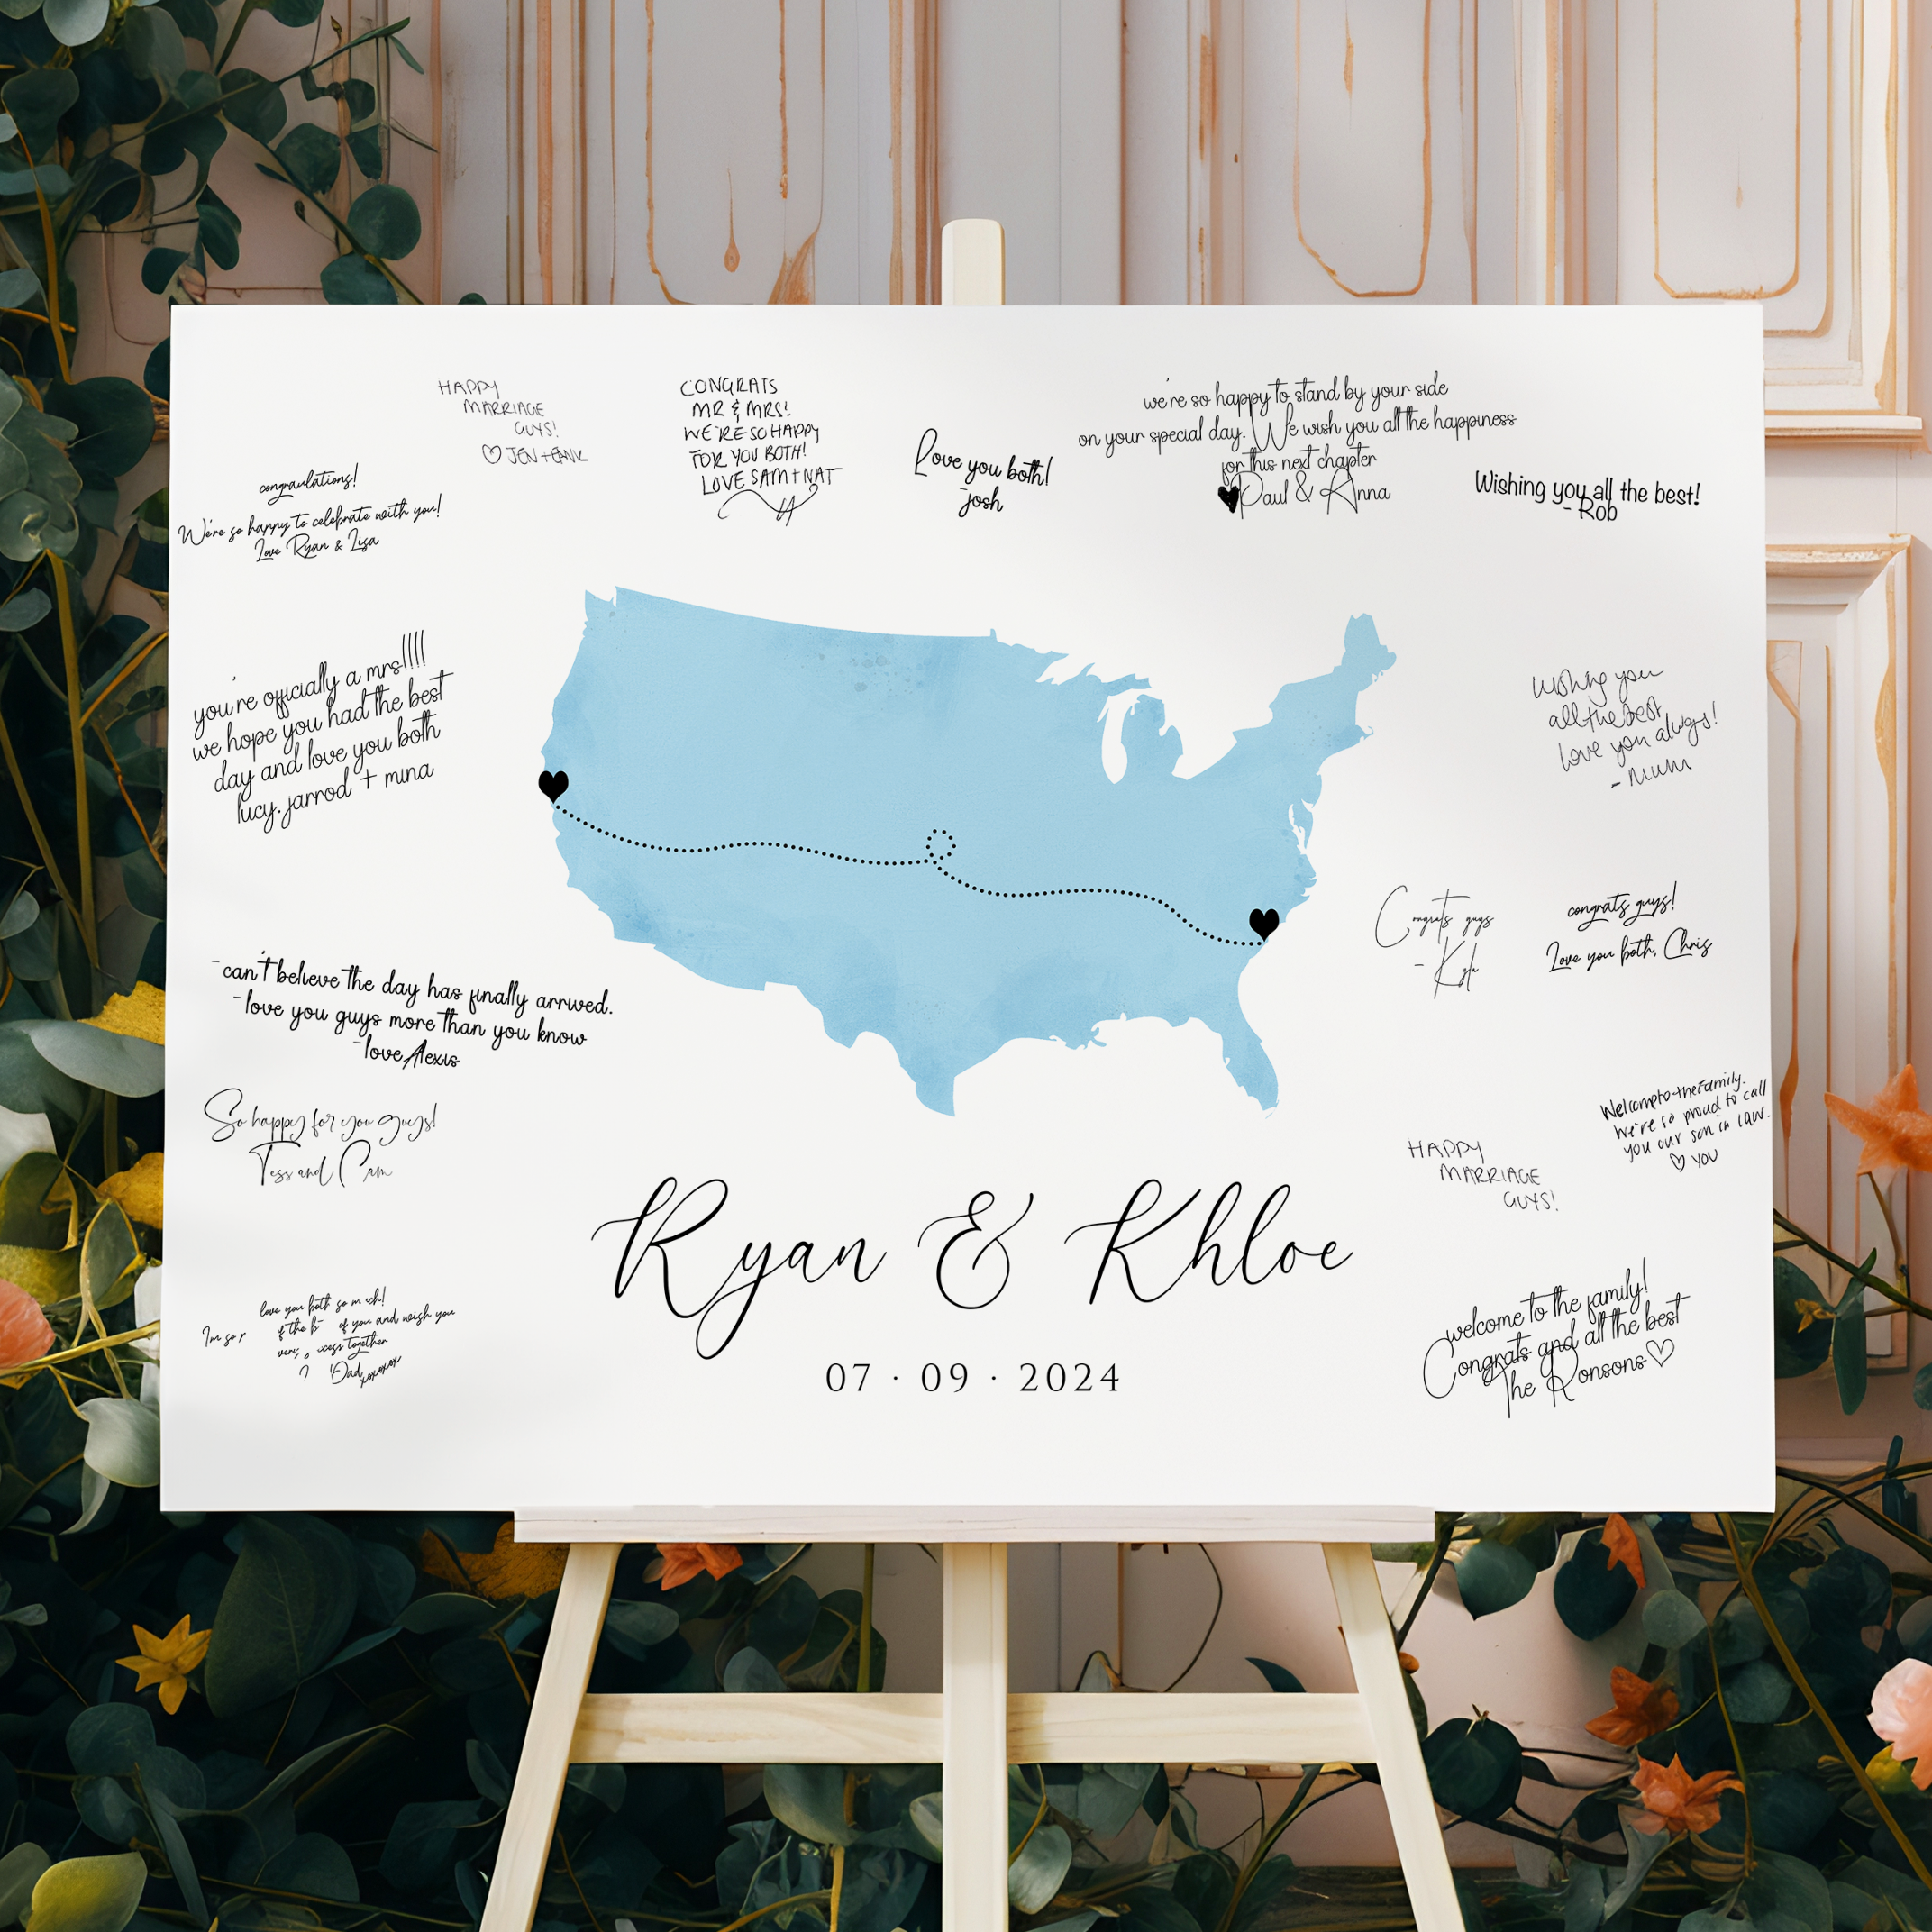 HAPPY
MARRIAGE
GUYS!
♡ JEN + 
CONGRATS
MR & MRS!
WE'RE SO HAPPY
FOR YOU BOTH!
LOVE SAM + NAT
Love you both!
-josh
we're so happy to stand by your side
on your special day. We wish you all the happiness
for this next chapter
♥Paul & Anna
Wishing you all the best!
- Rob
congraulations!
We're so happy to celebrate with you!
Love Ryan & Lisa
you're officially a mrs!!!!
we hope you had the best
day and love you both
lucy, jarrod + mina
Wishing you
all the best
love you always!
- mum
Congrats guys
- Kyla
congrats guys!
Love you both, Chris
-can't believe the day has finally arrived.
-love you guys more than you know
-love Alexis
So happy for you guys!
Tess and Cam
Welcome to the family.
We're so proud to call
you our son in law.
♡ YOU
HAPPY
MARRIAGE
GUYS!
Ryan & Khloe
07 · 09 · 2024
welcome to the family!
Congrats and all the best
The Ronsons♡
love you both so much!
I'm so of the of you and wish you
together
Dad
xoxoxox